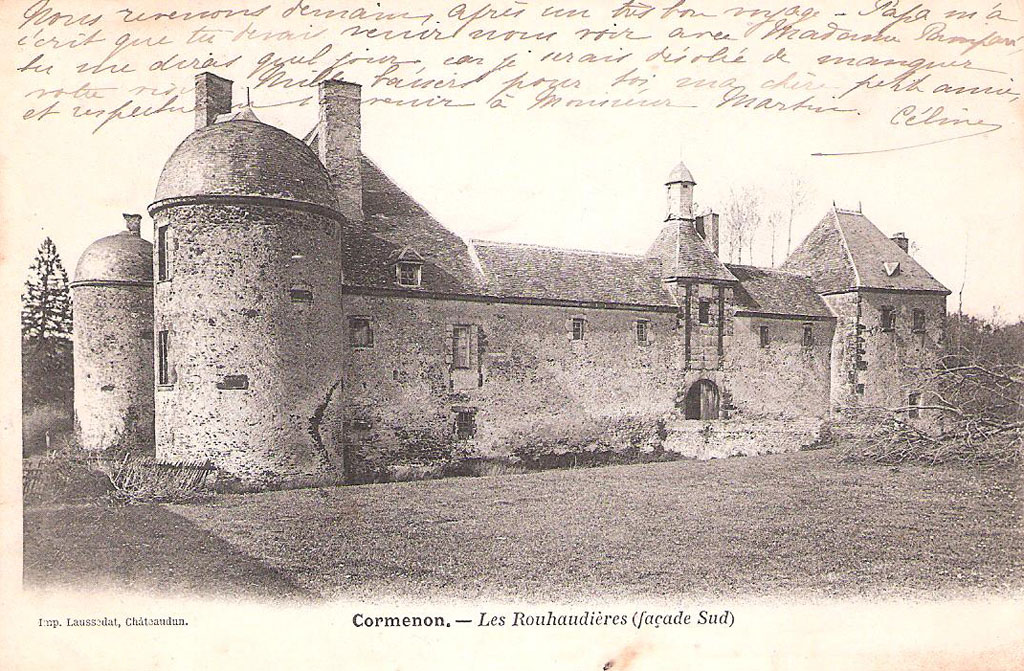 Nous revenons demain, après un très bon voyage - Papa m'a
écrit que tu devais venir nous voir avec Madame
tu me diras quel jour, car je serais désolée de manquer
votre Mille baisers pour toi ma chère petite amie,
et respectueux à Monsieur Martin.
Céline
Imp. Laussedat, Châteaudun.
Cormenon. — Les Rouhaudières (façade Sud)